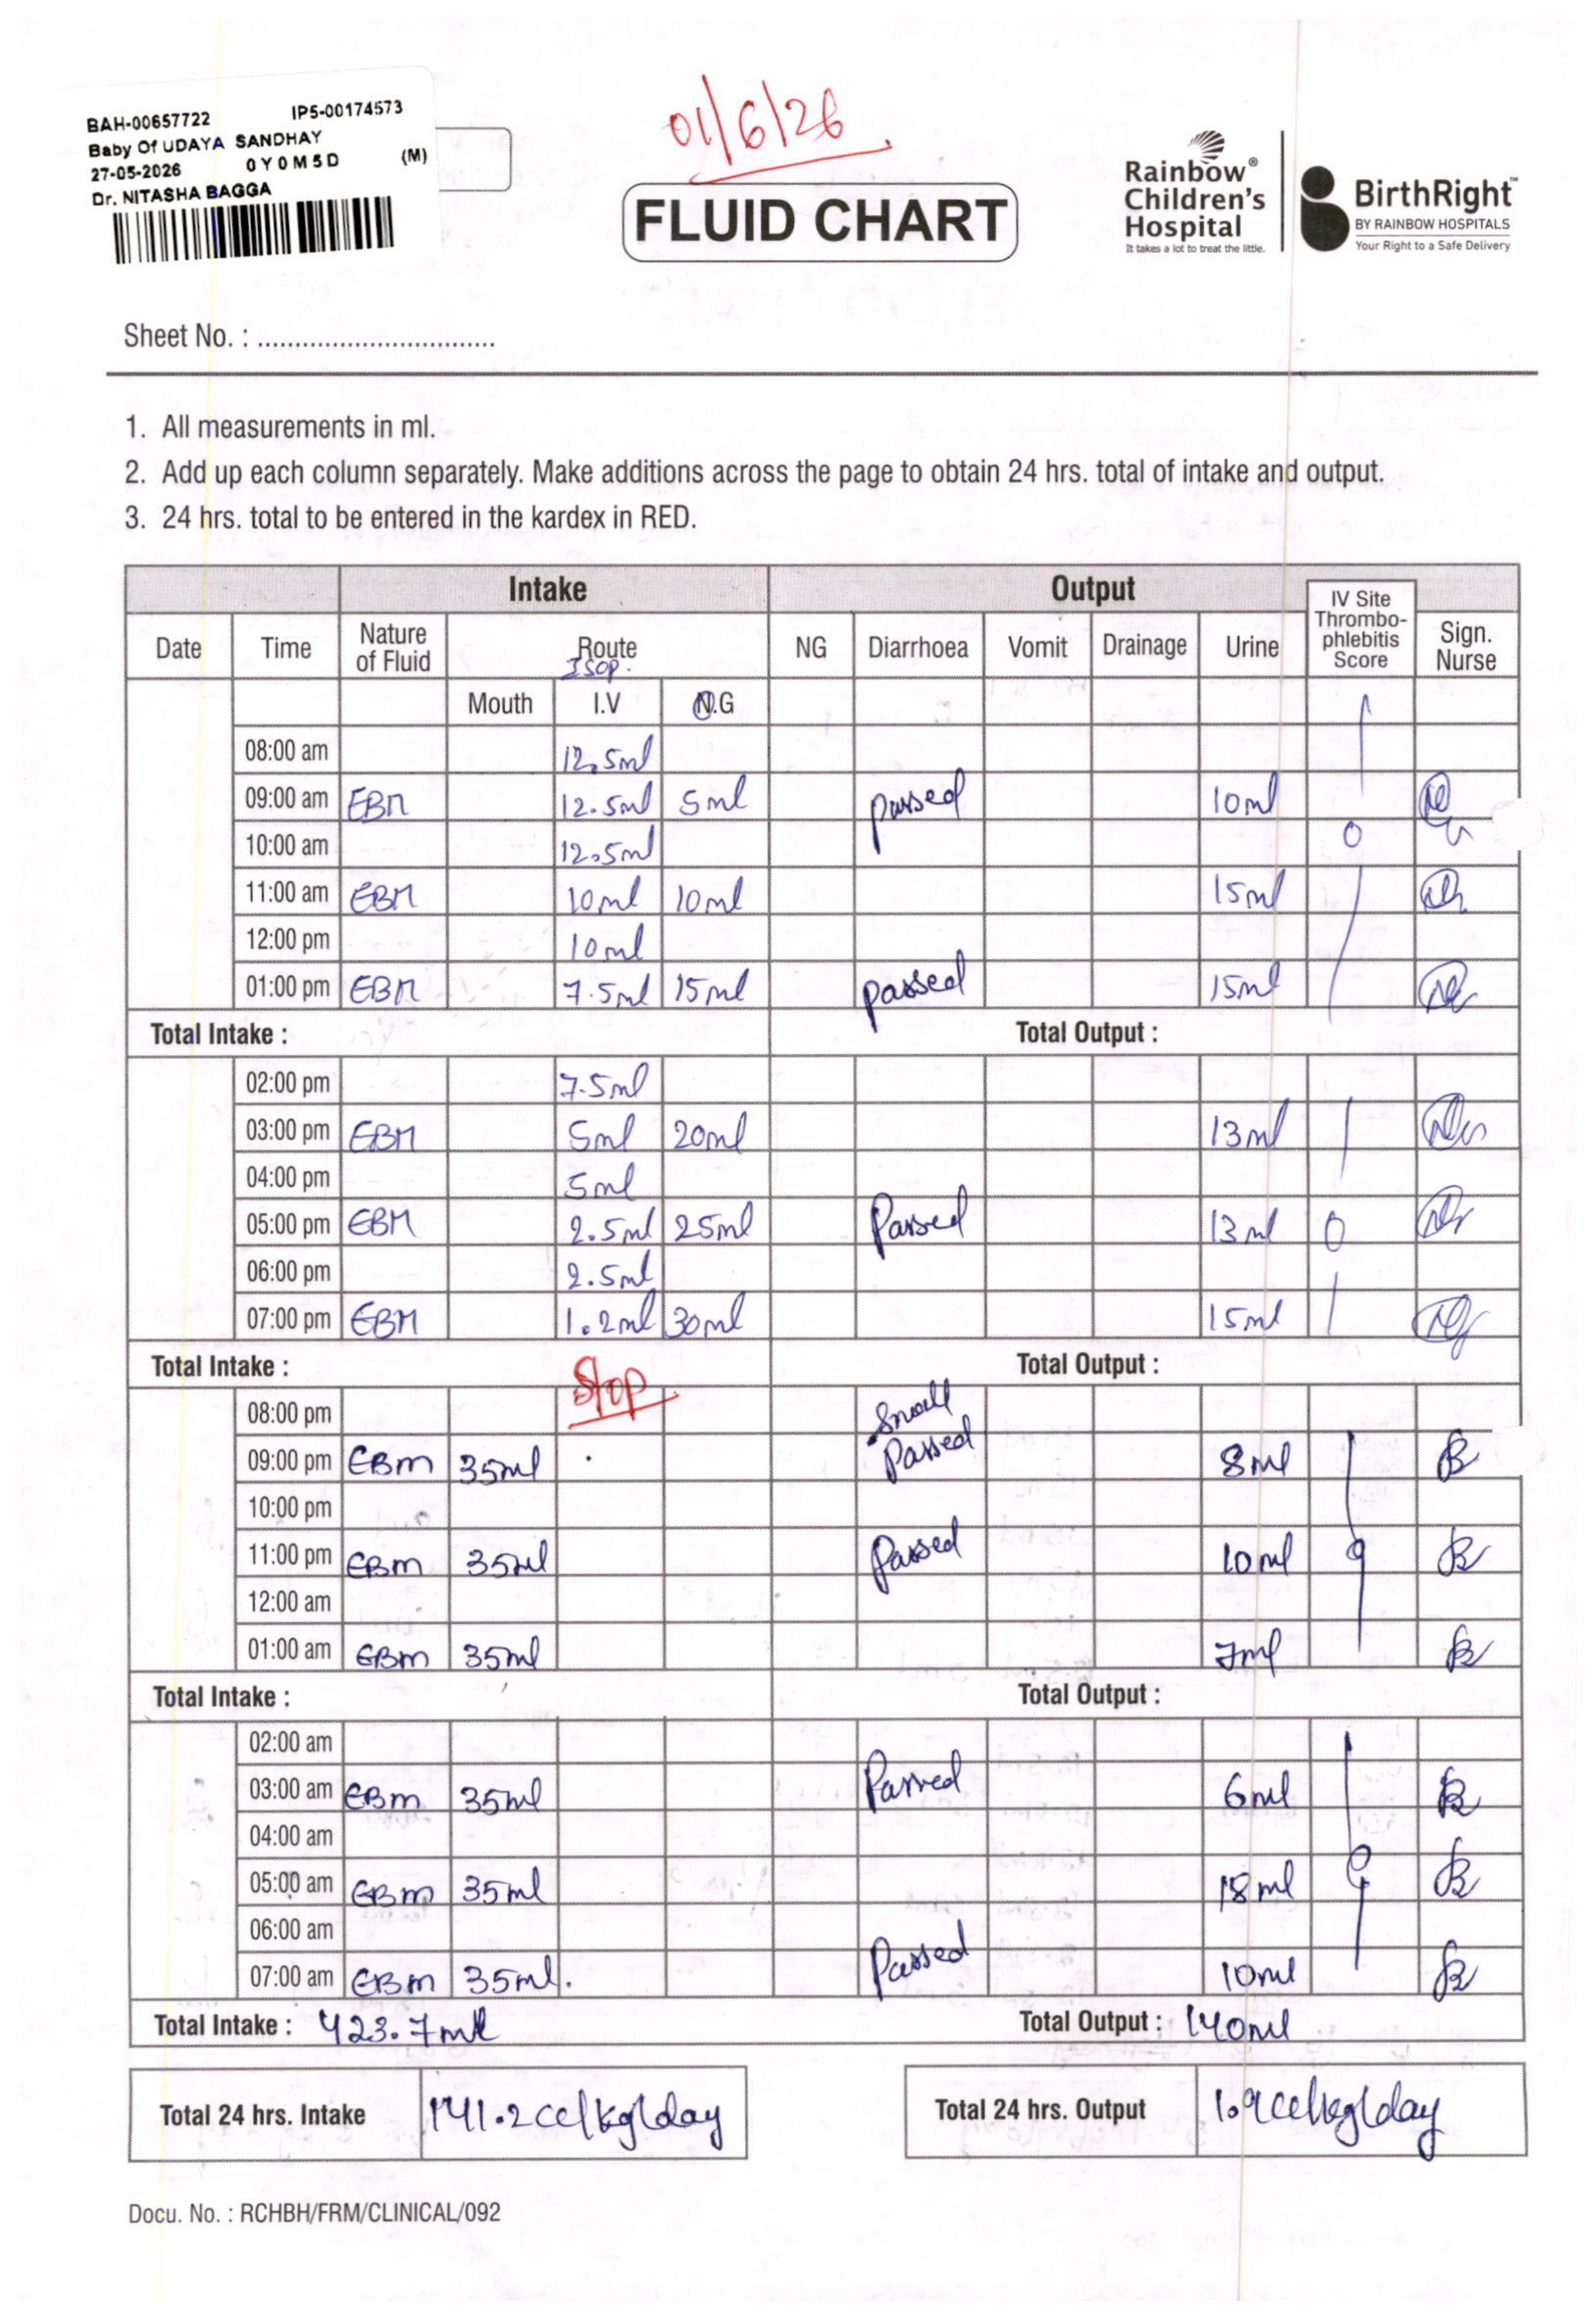 01/6/26
BAH-00657722 IP5-00174573
Baby Of UDAYA SANDHAY
27-05-2026 0Y0M5D (M)
Dr. NITASHA BAGGA
FLUID CHART
Rainbow®
Children's
Hospital
It takes a lot to treat the little.
BirthRight™
BY RAINBOW HOSPITALS
Your Right to a Safe Delivery
Sheet No. : ................................
1. All measurements in ml.
2. Add up each column separately. Make additions across the page to obtain 24 hrs. total of intake and output.
3. 24 hrs. total to be entered in the kardex in RED.
Intake Output IV Site Thrombo-phlebitis Score
Date Time Nature of Fluid Route NG Diarrhoea Vomit Drainage Urine Sign. Nurse
ISOP.
Mouth I.V N.G
08:00 am 12.5ml
09:00 am EBM 12.5ml 5ml passed 10ml
10:00 am 12.5ml 0
11:00 am EBM 10ml 10ml 15ml
12:00 pm 10ml
01:00 pm EBM 7.5ml 15ml passed 15ml
Total Intake : Total Output :
02:00 pm 7.5ml
03:00 pm EBM 5ml 20ml 13ml
04:00 pm 5ml
05:00 pm EBM 2.5ml 25ml Passed 13ml 0
06:00 pm 2.5ml
07:00 pm EBM 1.2ml 30ml 15ml
Total Intake : Total Output :
Stop
08:00 pm Small
09:00 pm EBm 35ml Passed 8ml
10:00 pm
11:00 pm EBm 35ml Passed 10ml
12:00 am
01:00 am EBm 35ml 7ml
Total Intake : Total Output :
02:00 am
03:00 am EBm 35ml Passed 6ml
04:00 am
05:00 am EBm 35ml 18ml
06:00 am
07:00 am EBm 35ml. Passed 10ml
Total Intake : 423.7ml Total Output : 140ml
Total 24 hrs. Intake 141.2cc/kg/day Total 24 hrs. Output 1.9cc/kg/day
Docu. No. : RCHBH/FRM/CLINICAL/092